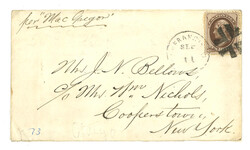 per "MacGregor"
DEC
11
Mrs J. N. Bellows,
c/o Mrs Wm Nichols,
Cooperstown,
New York.
73